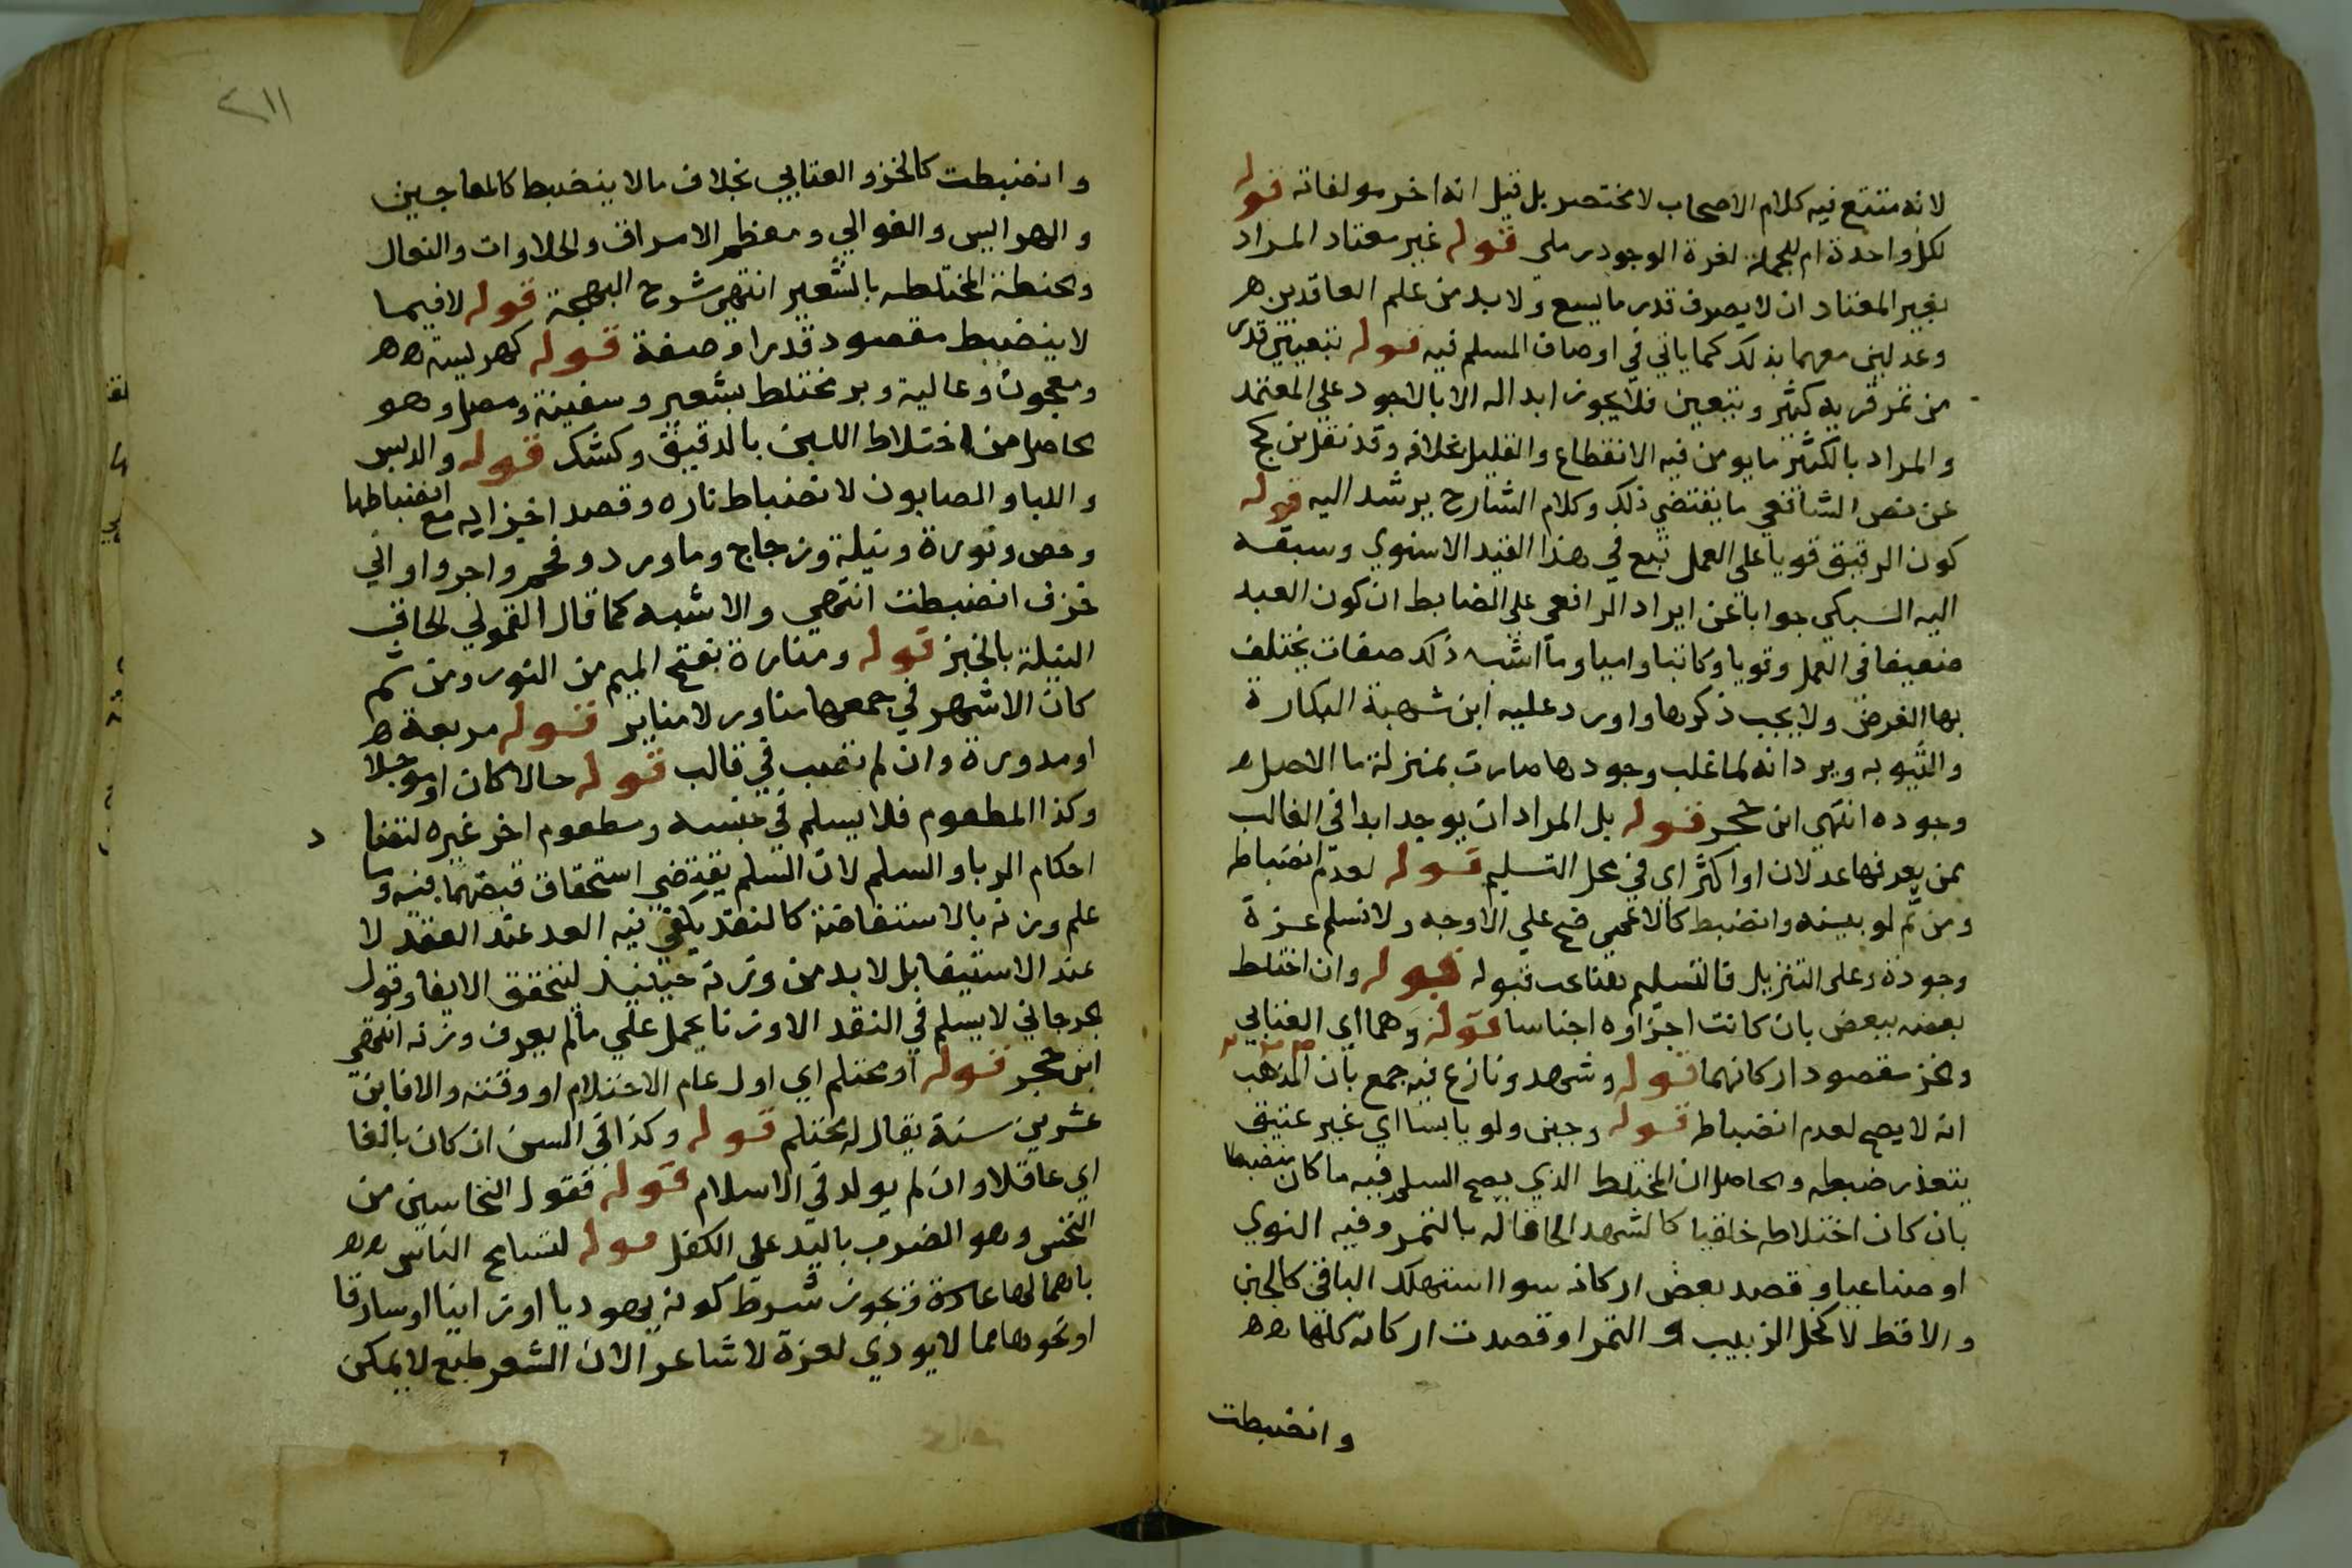 لانه متتبع فيه كلام الاصحاب لا مختصر بل قيل انه اخر مولفاته قوله
لكل واحدة ام للجملة لعزة الوجود رملي قوله غير معتاد المراد
بغير المعتاد ان لا يعرف قدر ما يسع ولا بد من علم العاقدين ه
وعدلين معهما بذلك كما ياتي في اوصاف المسلم فيه قوله بتعيين قدر
من تمر قرية كثير ويتعين فلا يجوز ابداله الا بالاجود علي المعتمد
والمراد بالكثير ما يومن فيه الانقطاع والقليل بخلافه وقد نقل بن كج
عن نص الشافعي ما يقتضي ذلك وكلام الشارح يرشد اليه قوله
كون الرقيق قويا علي العمل تبع في هذا القيد الاسنوي وسبقه
اليه السبكي جوابا عن ايراد الرافعي علي الضابط ان كون العبد
ضعيفا في العمل وقويا وكاتبا واميا وما اشبه ذلك صفات يختلف
بها الغرض ولا يجب ذكرها واورد عليه ابن شهبة البكارة
والثيوبه ويرد انه لما غلب وجودها صارت بمنزلة ما الاصل ه
وجوده انتهي ابن حجر قوله بل المراد ان يوجد ابدا في الغالب
بمن يعرفها عدلان او اكثر اي في محل التسليم قوله لعدم انضباطه
ومن ثم لو بيسه وانضبط كالاعجمي صح علي الاوجه ولا نسلم عزة
وجوده وعلي التنزيل فالتسليم قبوله قوله وان اختلط
بعضه ببعض بان كانت اجزاوه اجناسا قوله وهما اي العتابي
وبخز مقصود اركانهما قوله وشهد ونازع فيه جمع بان المذهب
انه لا يصح لعدم انضباطه قوله وجبن ولو يابسا اي غير عتيق
يتعذر ضبطه والحاصل ان المختلط الذي يصح السلم فيه ما كان منضبطا
بان كان اختلاطه خلقيا كالشهد الحاقا له بالتمر وفيه النوي
او صناعيا وقصد بعض اركانه سوا استهلك الباقي كالجبن
والاقط لا كخل الزبيب و التمر او قصدت اركانه كلها ه ه
وانضبطت
٢١١
وانضبطت كالخز والعتابي بخلاف ما لا ينضبط كالمعاجين
والهرايس والغوالي ومعظم الامراق والحلاوات والنعال
والحنطة المختلطه بالشعير انتهي شرح البهجة قوله لا فيما
لا ينضبط مقصود قدرا وصفة قوله كهريسة ه ه
ومعجون وغالية وبر مختلط بشعير وسفينة ومصل وهو
حاصل من اختلاط اللبن بالدقيق وكشك قوله والدبس
واللبا والصابون لا نضباط ناره وقصد اجزايه مع انضباطها
وجص ونورة ونيلة وزجاج وماورد وفحم واجر واواني
خزف انضبطت انتهي والاشبه كما قال القمولي الحاق
النيلة بالخبز قوله ومنارة بفتح الميم من النور ومن ثم
كان الاشهر في جمعها مناور لا مناير قوله مربعة ه
او مدورة وان لم تصب في قالب قوله حالا كان او موجلا
وكذا المطعوم فلا يسلم في جنسه ومطعوم اخر غيره لتضا د
احكام الربا والسلم لان السلم يقتضي استحقاق قبضهما فيه وما
علم وزنه بالاستفاضة كالنقد يكفي فيه العد عند العقد لا
عند الاستيفا بل لا بد من وزنه حينيذ ليتحقق الايفا وقول
الجرجاني لا يسلم في النقد الا وزنا يحمل علي ما لم يعرف وزنه انتهي
ابن حجر قوله او محتلم اي اول عام الاحتلام او وقته والا فابن
عشرين سنة يقال له محتلم قوله وكذا في السن ان كان بالغا
اي عاقلا وان لم يولد في الاسلام قوله فقول النخاسين من
النخس وهو الضرب باليد علي الكفل قوله لتسامح الناس ه ه
باهمالها عادة ويجوز شرط كونه يهوديا او زانيا او سارقا
او نحوها مما لا يودي لعزة لا شاعرا لان الشعر طبع لا يمكن